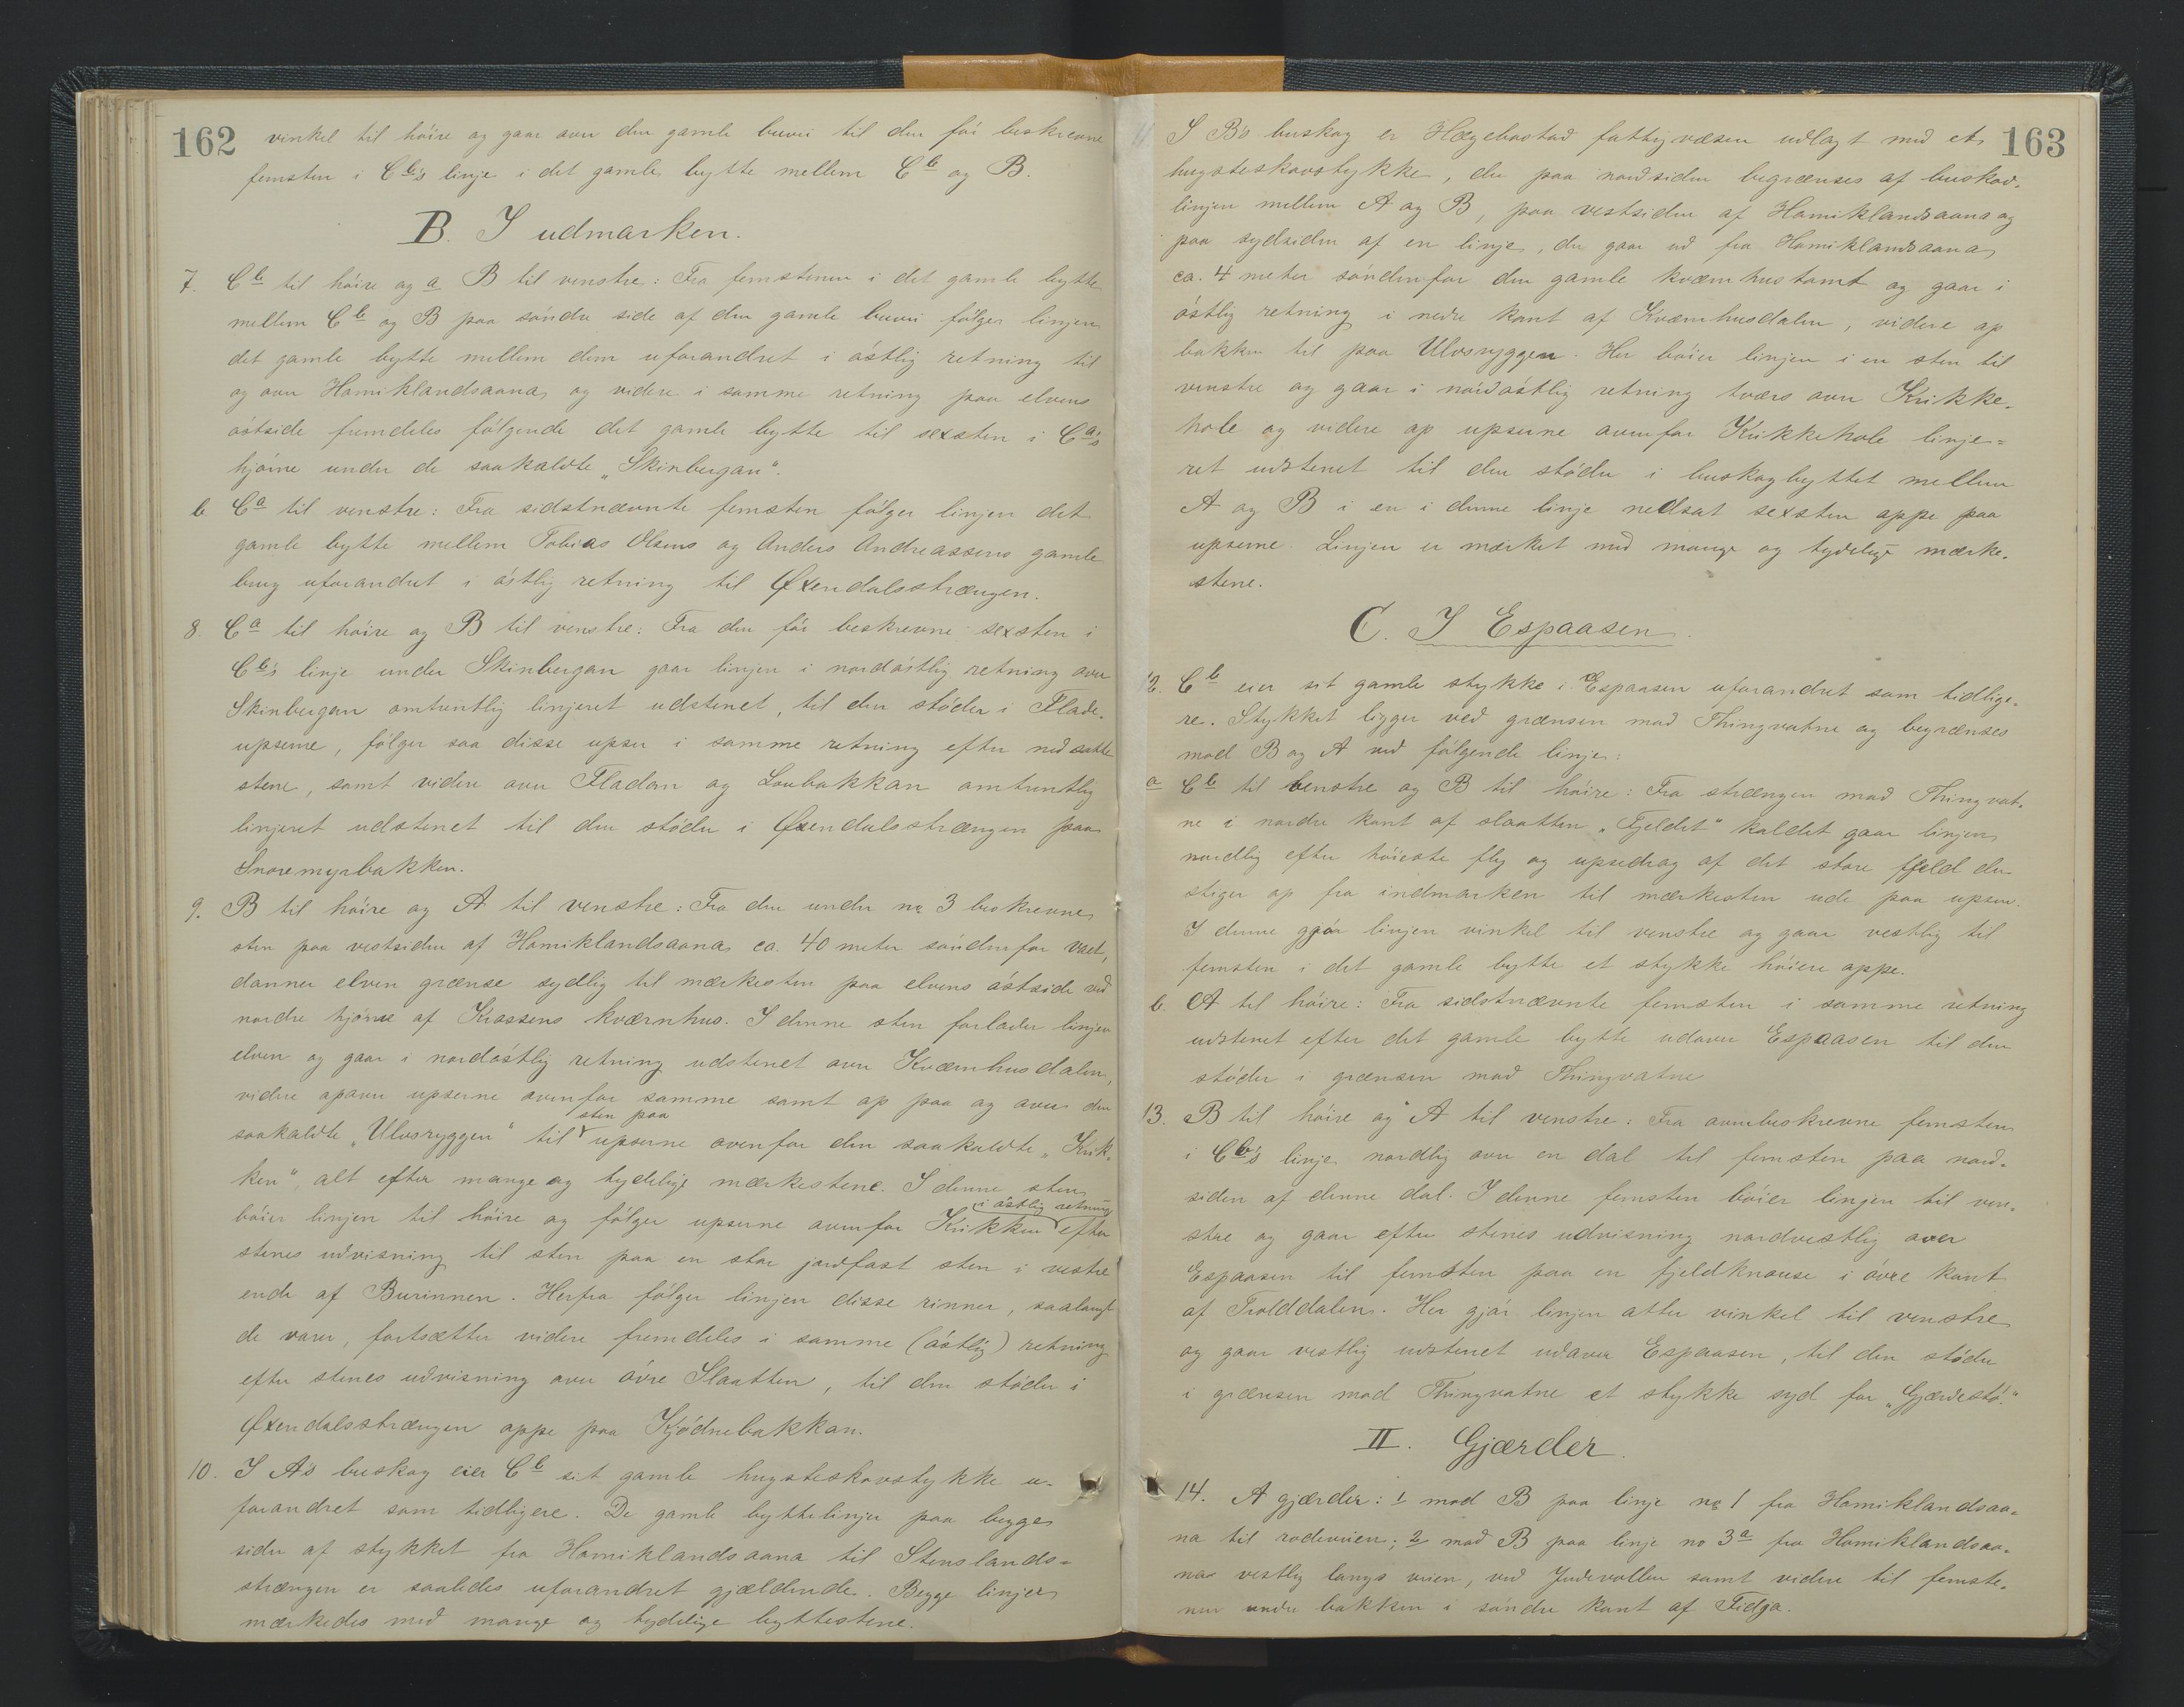 162
vinkel til høire og gaar over den gamle buvei til den før beskrevne
femsten i Cb's linje i det gamle bytte mellem Cb og B.
B. I udmarken.
7. Cb til høire og a B til venstre: Fra femstenen i det gamle bytte
mellem Cb og B paa søndre side af den gamle buvei følger linjen
det gamle bytte mellem dem uforandret i østlig retning til
og over Homiklandsaana og videre i samme retning paa elvens
østside fremdeles følgende det gamle bytte til sexsten i Ca's
hjørne under de saakaldte „Skinbergan“.
b. Ca til venstre: Fra sidstnævnte femsten følger linjen det
gamle bytte mellem Tobias Olsens og Anders Andreassens gamle
brug uforandret i østlig retning til Øxendalsstrængen.
8. Ca til høire og B til venstre: Fra den før beskrevne sexsten i
Cb's linje under Skinbergan gaar linjen i nordøstlig retning over
Skinbergan omtrentlig linjeret udstenet, til den støder i Flade-
upserne, følger saa disse upser i samme retning efter nedsatte
stene, samt videre over Fladan og Loubakkan omtrentlig
linjeret udstenet til den støder i Øxendalsstrængen paa
Snoremyrbakken.
9. B til høire og A til venstre: Fra den under no 3 beskrevne
sten paa vestsiden af Homiklandsaana ca. 40 meter søndenfor vaet,
danner elven grænse sydlig til mærkesten paa elvens østside ved
nordre hjørne af Krossens kværnhus. I denne sten forlader linjen
elven og gaar i nordøstlig retning udstenet over Kværnhusdalen,
videre opover upserne ovenfor samme samt op paa og over den
saakaldte „Ulvsryggen“ til sten paa upserne ovenfor den saakaldte „Krik-
ken“, alt efter mange og tydelige mærkestene. I denne sten
bøier linjen til høire og følger upserne ovenfor Krikken i østlig retning efter
stenes udvisning til sten paa en stor jordfast sten i vestre
ende af Burinnen. Herfra følger linjen disse rinner, saalangt
de varer, fortsætter videre fremdeles i samme (østlig) retning
efter stenes udvisning over øvre Slaatten, til den støder i
Øxendalsstrængen oppe paa Kjødnebakkan.
10. I A's buskog eier Cb sit gamle hugsteskovstykke u-
forandret som tidligere. De gamle byttelinjer paa begge
sider af stykket fra Homiklandsaana til Stenslands-
strængen er saaledes uforandret gjældende. Begge linjer
mærkedes med mange og tydelige byttestene.
163
11 I B's buskog er Hægebostad fattigvæsen udlagt med et
hugsteskovstykke, der paa nordsiden begrænses af buskov-
linjen mellem A og B, paa vestsiden af Homiklandsaana og
paa sydsiden af en linje, der gaar ud fra Homiklandsaana
ca. 4 meter søndenfor den gamle kværnhustomt og gaar i
østlig retning i nedre kant af Kværnhusdalen, videre op
bakken til paa Ulvsryggen. Her bøier linjen i en sten til
venstre og gaar i nordøstlig retning tværs over Krikke-
hole og videre op upserne ovenfor Krikkehole linje-
ret udstenet til den støder i buskogbyttet mellem
A og B i en i denne linje nedsat sexsten oppe paa
upserne. Linjen er mærket med mange og tydelige mærke-
stene.
C. I Espaasen
12. Cb eier sit gamle stykke i Espaasen uforandret som tidlige-
re. Stykket ligger ved grænsen mod Thingvatne og begrænses
mod B og A ved følgende linje:
a Cb til venstre og B til høire: Fra strængen mod Thingvat-
ne i nordre kant af slaatten „Fjeldet“ kaldet gaar linjen
nordlig efter høieste fly og upsedrag af det store fjeld der
stiger op fra indmarken til mærkesten ude paa upsen.
I denne gjør linjen vinkel til venstre og gaar vestlig til
femsten i det gamle bytte et stykke høiere oppe.
b. A til høire: Fra sidstnævnte femsten i samme retning
udstenet efter det gamle bytte udover Espaasen til den
støder i grænsen mod Thingvatne
13. B til høire og A til venstre: Fra ovenbeskrevne femsten
i Cb's linje nordlig over en dal til femsten paa nord-
siden af denne dal. I denne femsten bøier linjen til ven-
stre og gaar efter stenes udvisning nordvestlig over
Espaasen til femsten paa en fjeldknause i øvre kant
af Trolddalen. Her gjør linjen atter vinkel til venstre
og gaar vestlig udstenet udover Espaasen, til den støder
i grænsen mod Thingvatne et stykke syd for „Gjærdestø“.
II. Gjærder.
14. A gjærder: 1 mod B paa linje no 1 fra Homiklandsaa-
na til rodeveien; 2 mod B paa linje no 3a fra Homiklandsaa-
na vestlig langs veien, ved Judevollen samt videre til femste-
nen under bakken i søndre kant af Fidga.